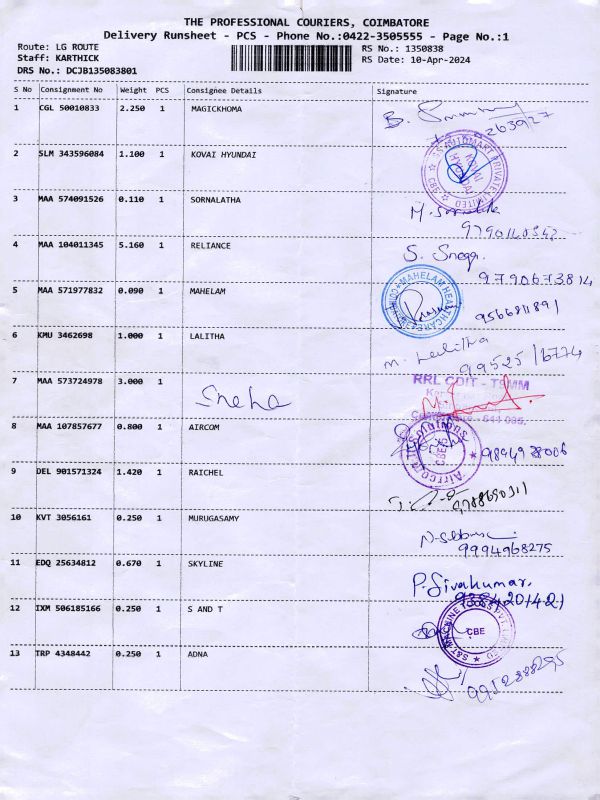 THE PROFESSIONAL COURIERS, COIMBATORE
Delivery Runsheet - PCS - Phone No.:0422-3505555 - Page No.:1
Route: LG ROUTE RS No.: 1350838
Staff: KARTHICK RS Date: 10-Apr-2024
DRS No.: DCJB135083801
S No Consignment No Weight PCS Consignee Details Signature
1 CGL 50010833 2.250 1 MAGICKHOMA
263927
2 SLM 343596084 1.100 1 KOVAI HYUNDAI
KOVAI HYUNDAI
3 MAA 574091526 0.110 1 SORNALATHA
4 MAA 104011345 5.160 1 RELIANCE S.
9790673814
5 MAA 571977832 0.090 1 MAHELAM MAHELAM HEALTHCARE
9566811891
6 KMU 3462698 1.000 1 LALITHA m. Lalitha
99525 16774
7 MAA 573724978 3.000 1 Sneha RRL CDIT - TSMM
8 MAA 107857677 0.800 1 AIRCOM CBE
9894928006
9 DEL 901571324 1.420 1 RAICHEL
10 KVT 3056161 0.250 1 MURUGASAMY
9994968275
11 EDQ 25634812 0.670 1 SKYLINE P. Sivakumar.
12 IXM 506185166 0.250 1 S AND T CBE
13 TRP 4348442 0.250 1 ADNA
9952888295